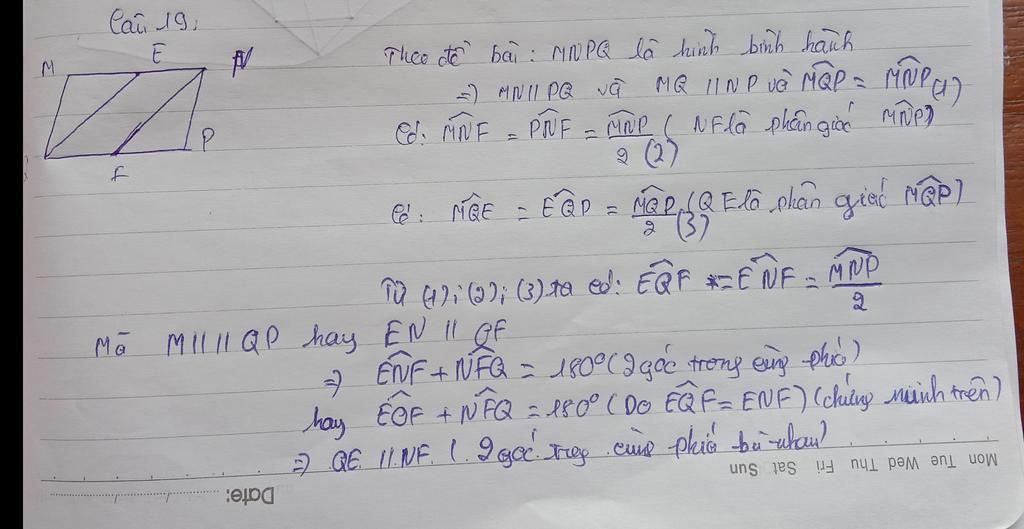 Câu 19:
M E N
P
F
Theo đề bài: MNPQ là hình bình hành
=> MN // PQ và MQ // NP và MQP = MNP (1)
Có: MNF = PNF = MNP/2 (NF là phân giác MNP) (2)
Có: MQE = EQP = MQP/2 (QE là phân giác MQP) (3)
Từ (1); (2); (3) ta có: EQF = ENF = MNP/2
Mà M // // QP hay EN // QF
=> ENF + NFQ = 180° (2 góc trong cùng phía)
hay EQF + NFQ = 180° (Do EQF = ENF) (chứng minh trên)
=> QE // NF. (2 góc trog cùng phía bù nhau)
Mon Tue Wed Thu Fri Sat Sun
Date: